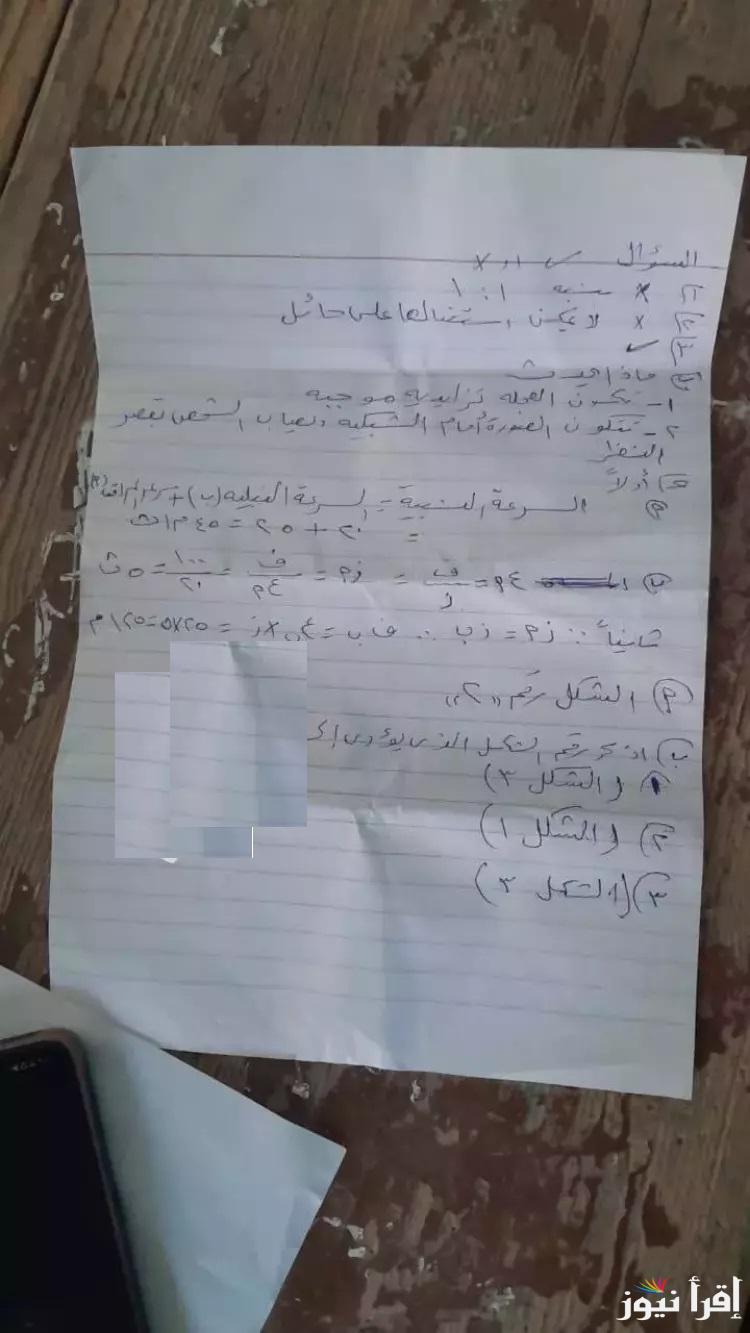 السؤال ✓ او ×
١) × بنسبه ١ : ١
٢) × لا يمكن استقبالها على حائل
٣) ✓
ب) ماذا يحدث
١- تكون العجله تزايديه موجبه
٢- تتكون الصورة أمام الشبكيه ويصاب الشخص بقصر
النظر
ج) أولاً
م) السرعة النسبية = السرعة الفعليه (ب) + سرعة المراقب (م)
= ٢٠ + ٢٥ = ٤٥ م/ث
ب) ع م = ف/ز = ز م = ف/ع م = ١٠٠/٢٠ = ٥ ث
ثانياً ∵ ز م = ز ب ∴ ف ب = ع ب × ز = ٢٥×٥ = ١٢٥ م
م) الشكل رقم "٢"
ب) اذكر رقم الشكل الذى يؤدى إلى
١) (الشكل ٣)
٢) (الشكل ١)
٣) (الشكل ٣)
إقرأ نيوز